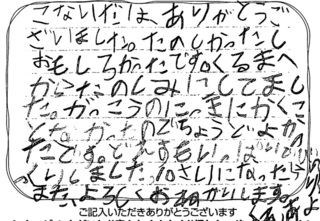 こないだは、ありがとうご
ざいました。たのしかったし
おもしろかったです。くるまへ
からたのしみにしてまし
た。がっこうのにっきにかくこ
となかったのでちょうどよかっ
たです。
くりしました。10さいになったら
また、よろしくおねがいします。
ご記入いただきありがとうございます